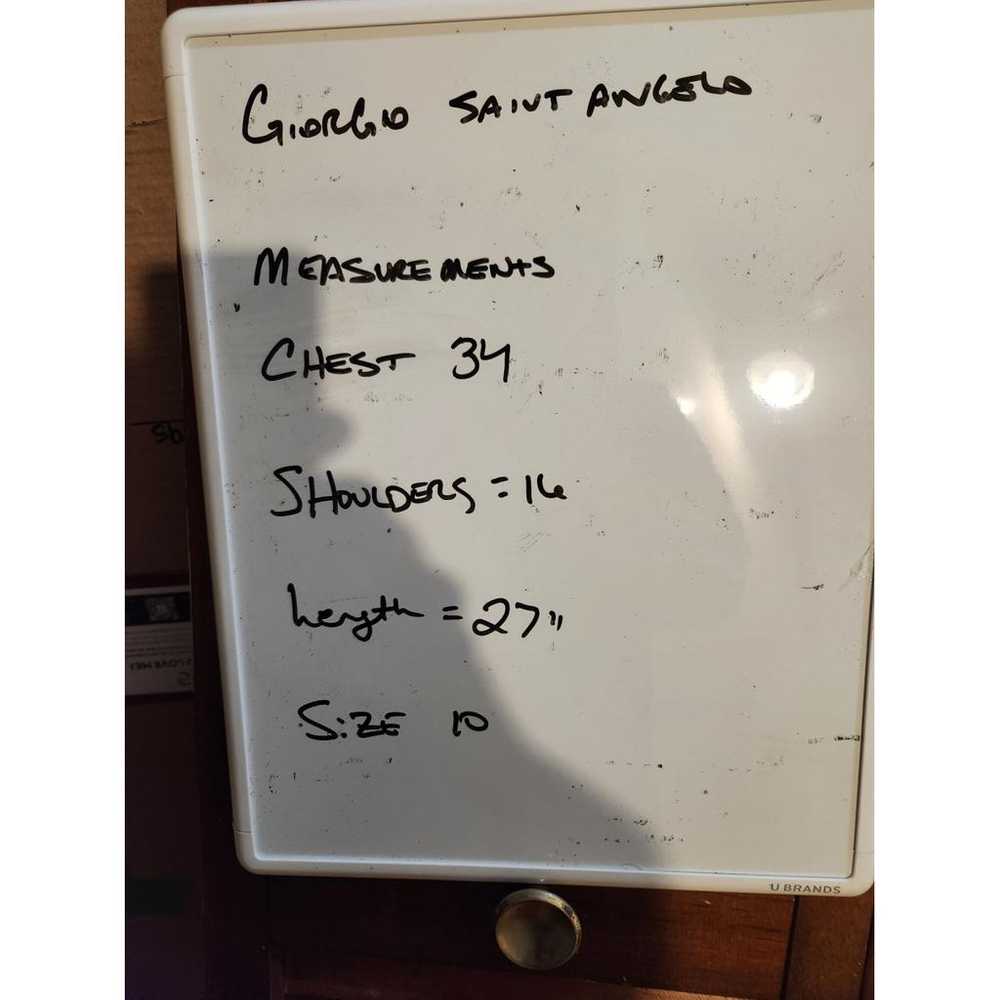 GIORGIO SAINT ANGELO
MEASUREMENTS
CHEST 34
SHOULDERS = 16
Length = 27"
SIZE 10
U BRANDS